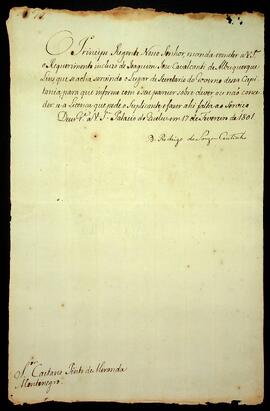 O Principe Regente Nosso Senhor, manda remetter a V. S.ª
o Requerimento incluzo de Joaquim Joze Cavalcanti de Albuquerque
Lins que se acha servindo o Lugar de Secretario do Governo dessa Capi
tania para que informe com o seu parecer sobre dever ou não conce
der-se a Licença que pede o Suplicante e fazer ahi falta ao Serviço
Deus G.e a V. S.ª Palacio de Queluz em 17 de Fevereiro de 1801
D. Rodrigo de Souza Coutinho
S.or Caetano Pinto de Miranda
Montenegro